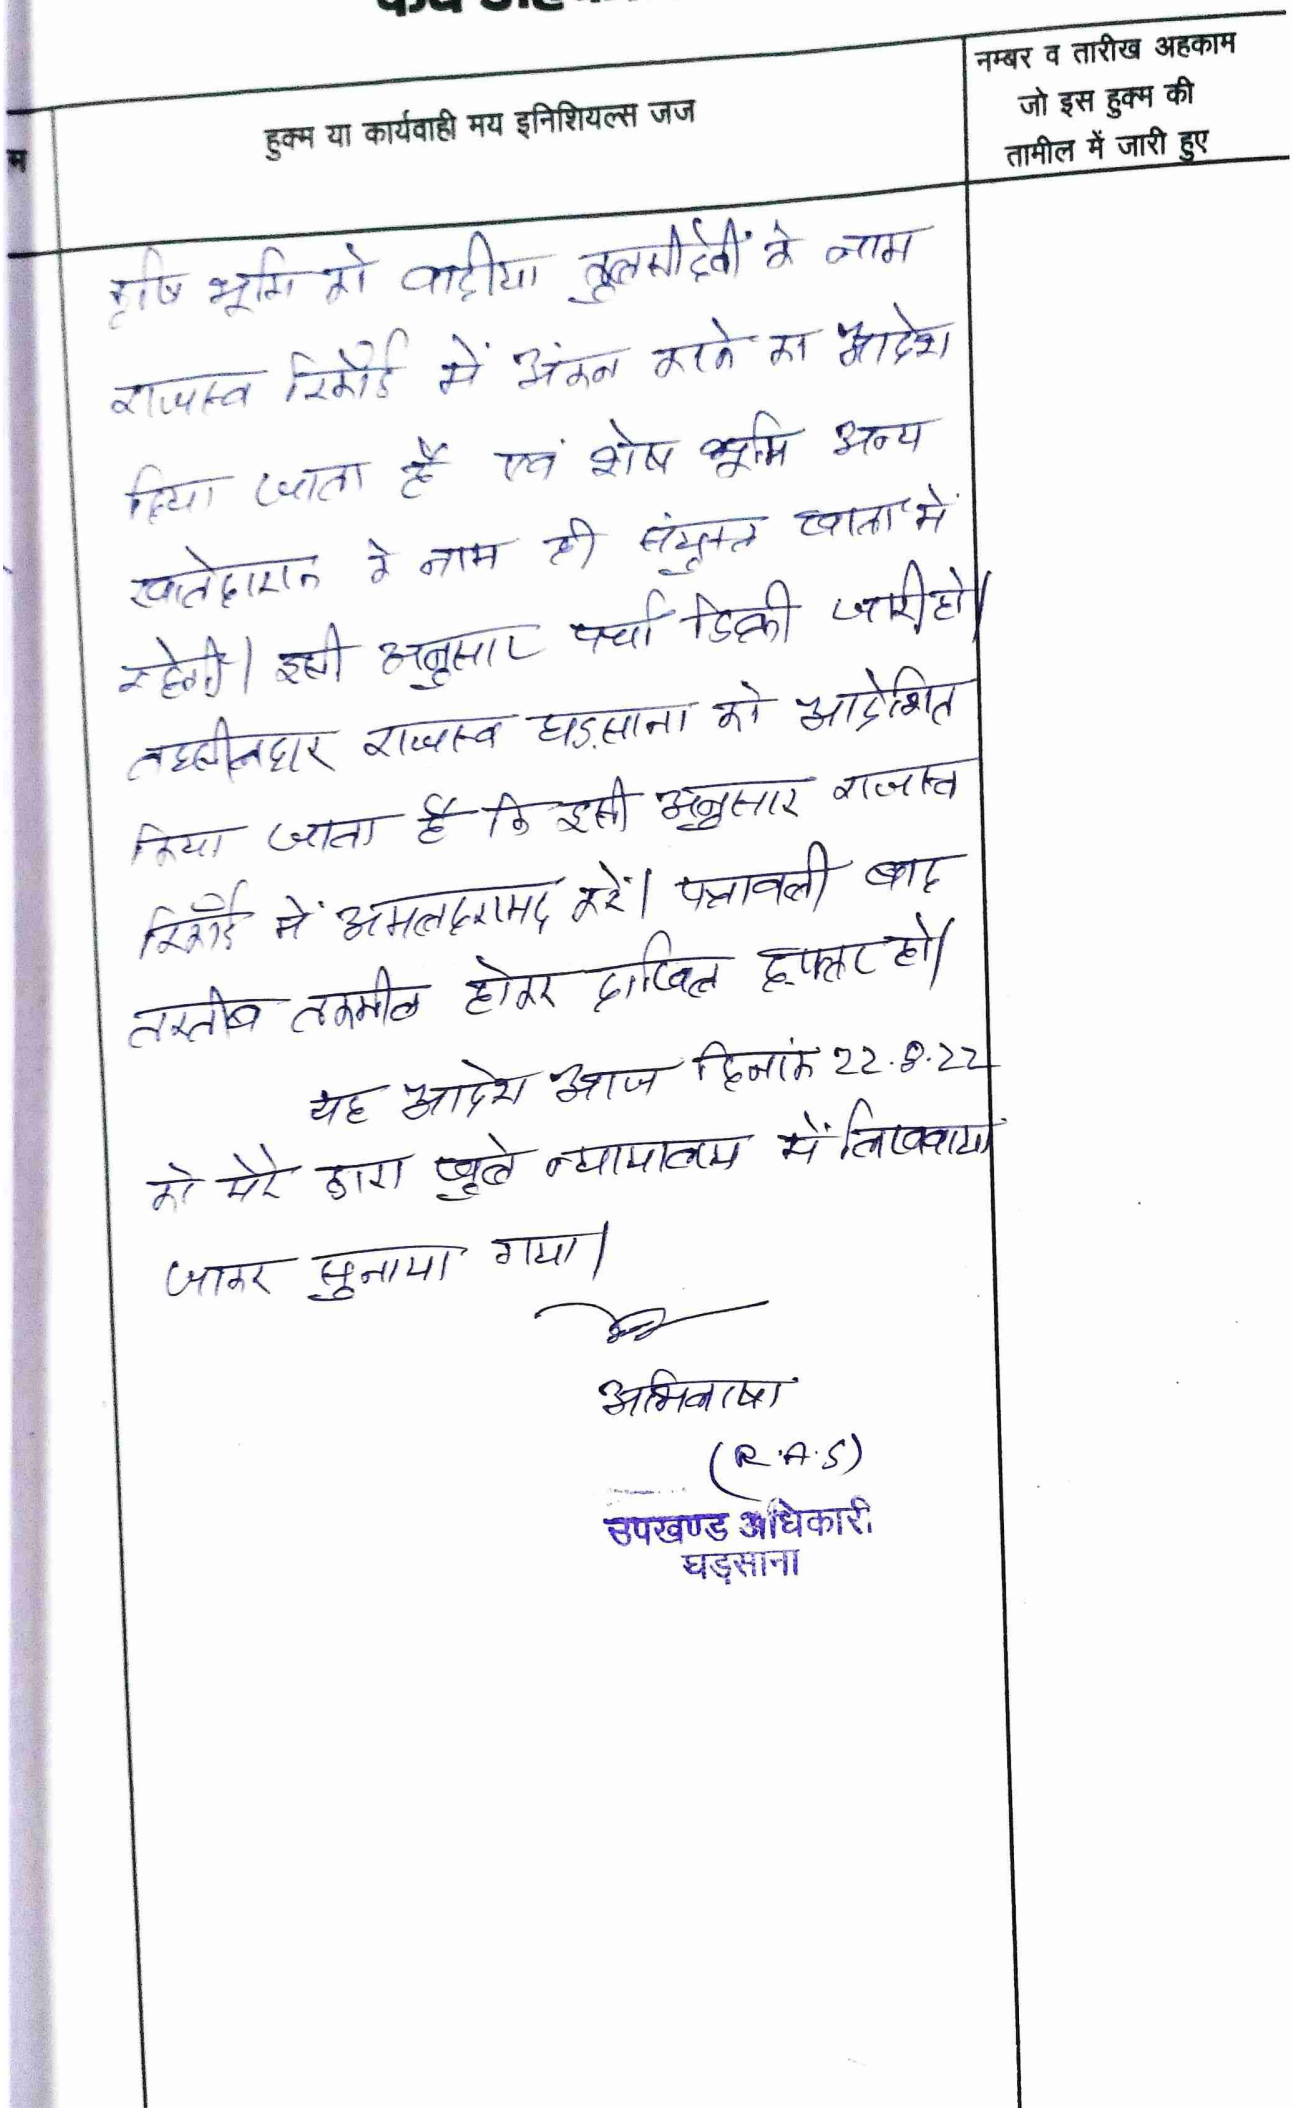 नम्बर व तारीख अहकाम
जो इस हुक्म की
तामील में जारी हुए
हुक्म या कार्यवाही मय इनिशियल्स जज
म
कृषि भूमि को वादीया तुलसीदेवी के नाम
राजस्व रिकॉर्ड में अंकन करने का आदेश
दिया जाता है एवं शेष भूमि अन्य
खातेदारान के नाम ही संयुक्त खाता में
रहेगी। इसी अनुसार पर्चा डिक्री जारी हो।
तहसीलदार राजस्व घड़साना को आदेशित
किया जाता है कि इसी अनुसार राजस्व
रिकॉर्ड में अमलदरामद करें। पत्रावली बाद
तरतीब तकमील होकर दाखिल दफ्तर हो।
यह आदेश आज दिनांक 22.8.22
को मेरे द्वारा खुले न्यायालय में लिखवाया
जाकर सुनाया गया।
अभिलाषा
(R.A.S)
उपखण्ड अधिकारी
घड़साना